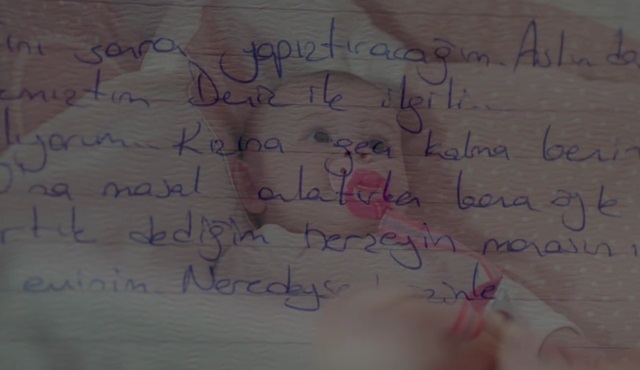 ini sonra yapıştıracağım. Aslında
emiştim Deniz ile ilgili...
lıyorum... Kızına geç kalma benim
O'na masal anlatırken bana öyle
rtık dediğim herşeyin manasını
eminim. Neredeyse